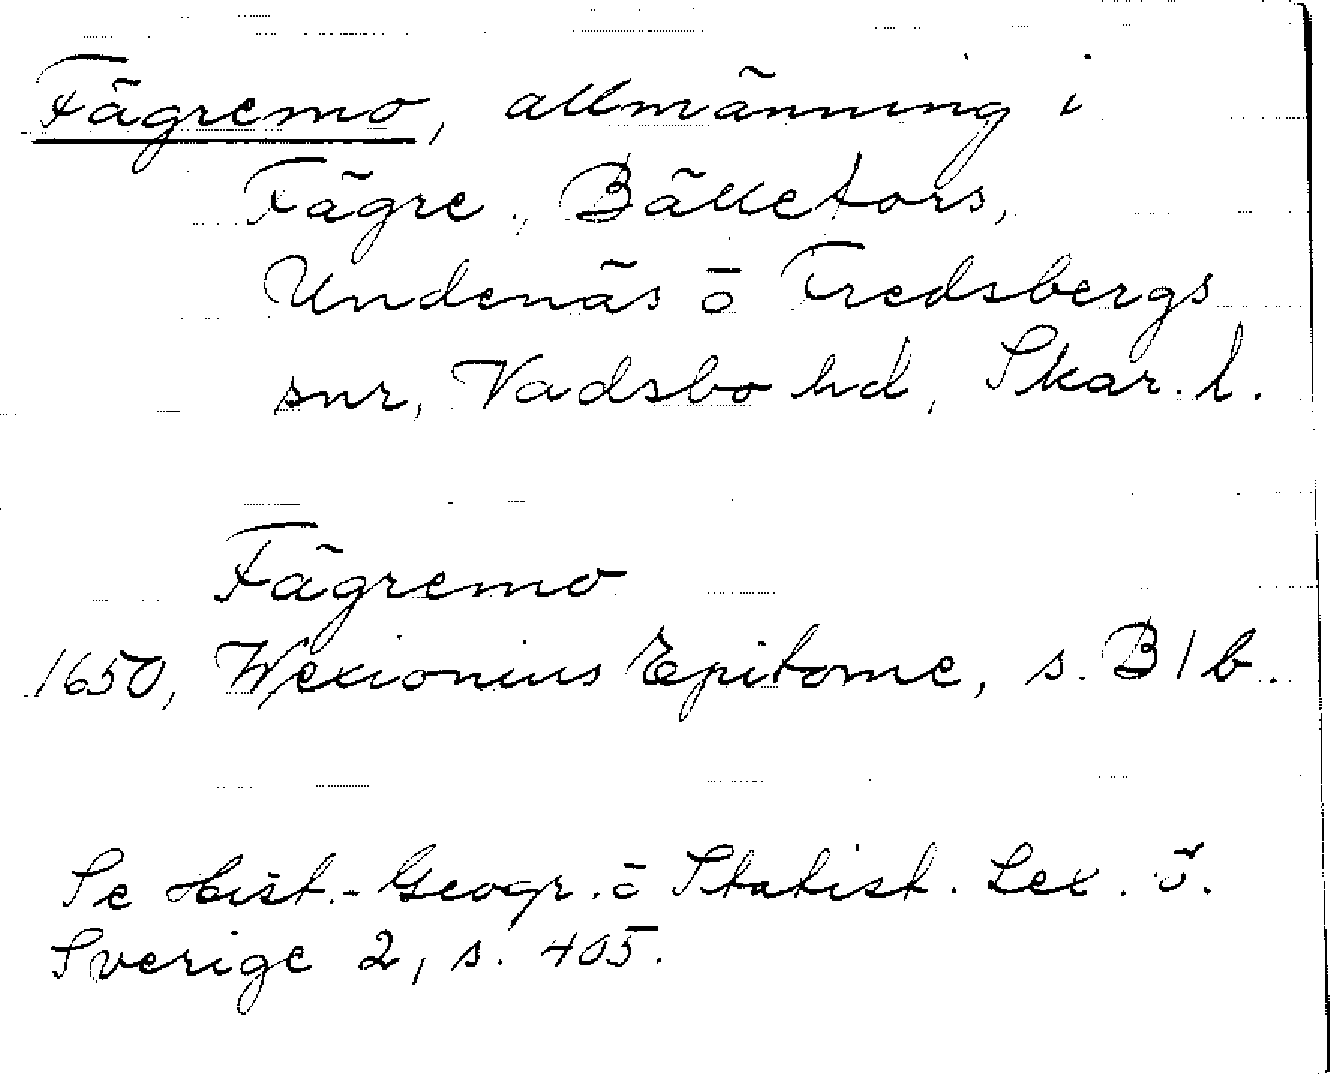 Fägremo, allmänning i
Fägre, Bälletors,
Undenäs o Fredsbergs
snr, Vadsbo hd, Skar. l.
Fägremo
1650, Wexionius Epitome, s. B1b.
Se Hist.-Geogr. o Statist. Lex. ö.
Sverige 2, s. 405.